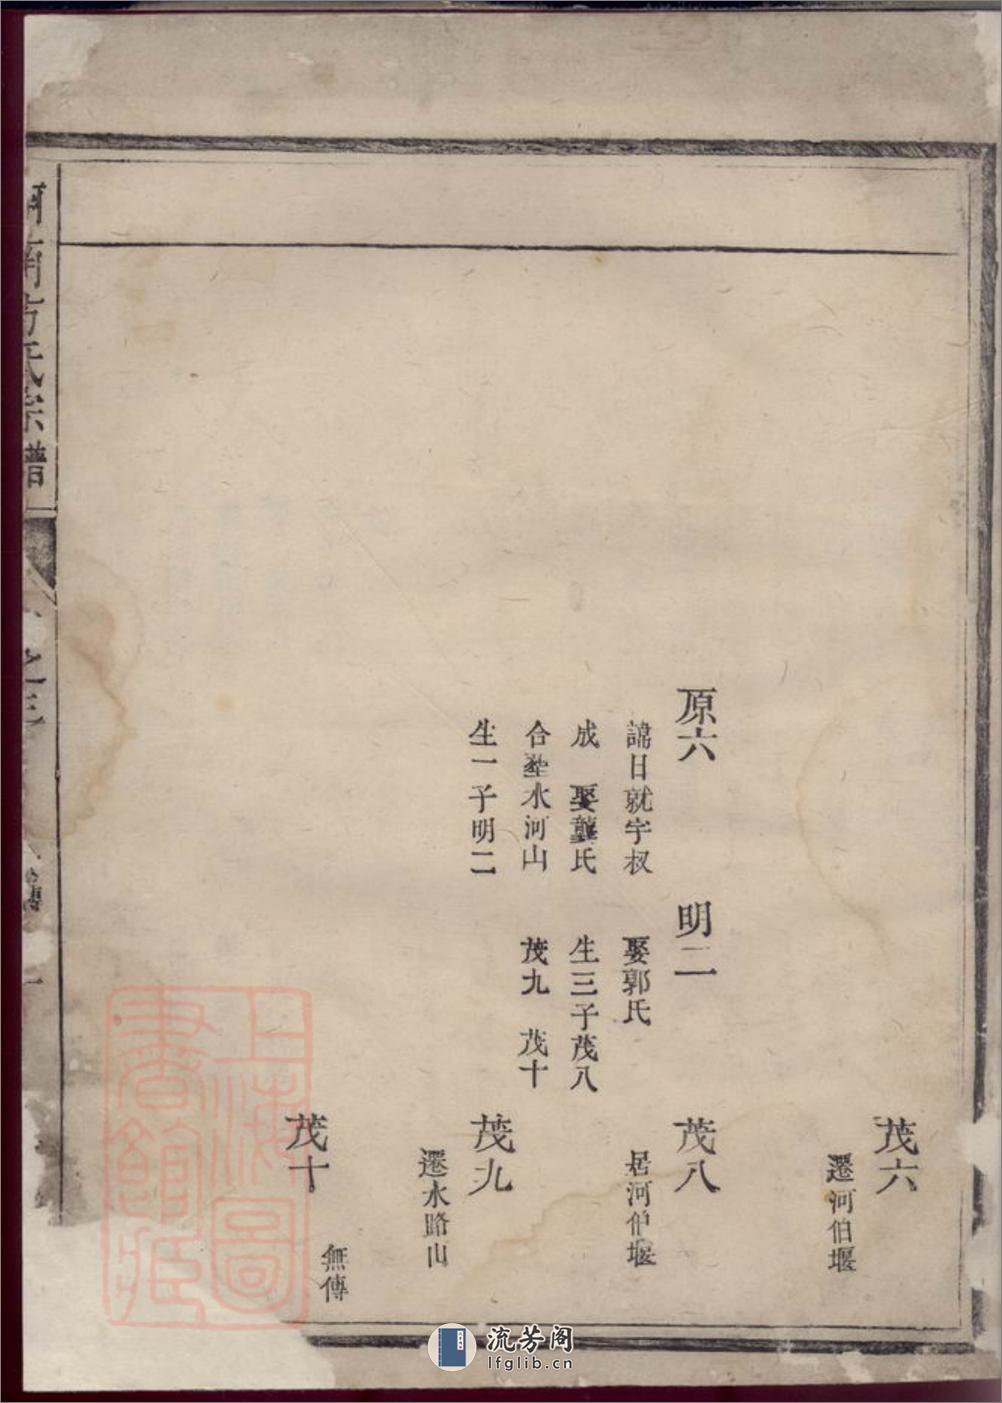 茂六
遷河伯堰
原六
諱日就字叔
成 娶龔氏
合塟水河山
生一子明二
明二
娶郭氏
生三子茂八
茂九 茂十
茂八
居河伯堰
茂九
遷水路山
茂十
無傳
河南方氏宗譜
上海圖
書館藏
流芳阁
lfglib.cn